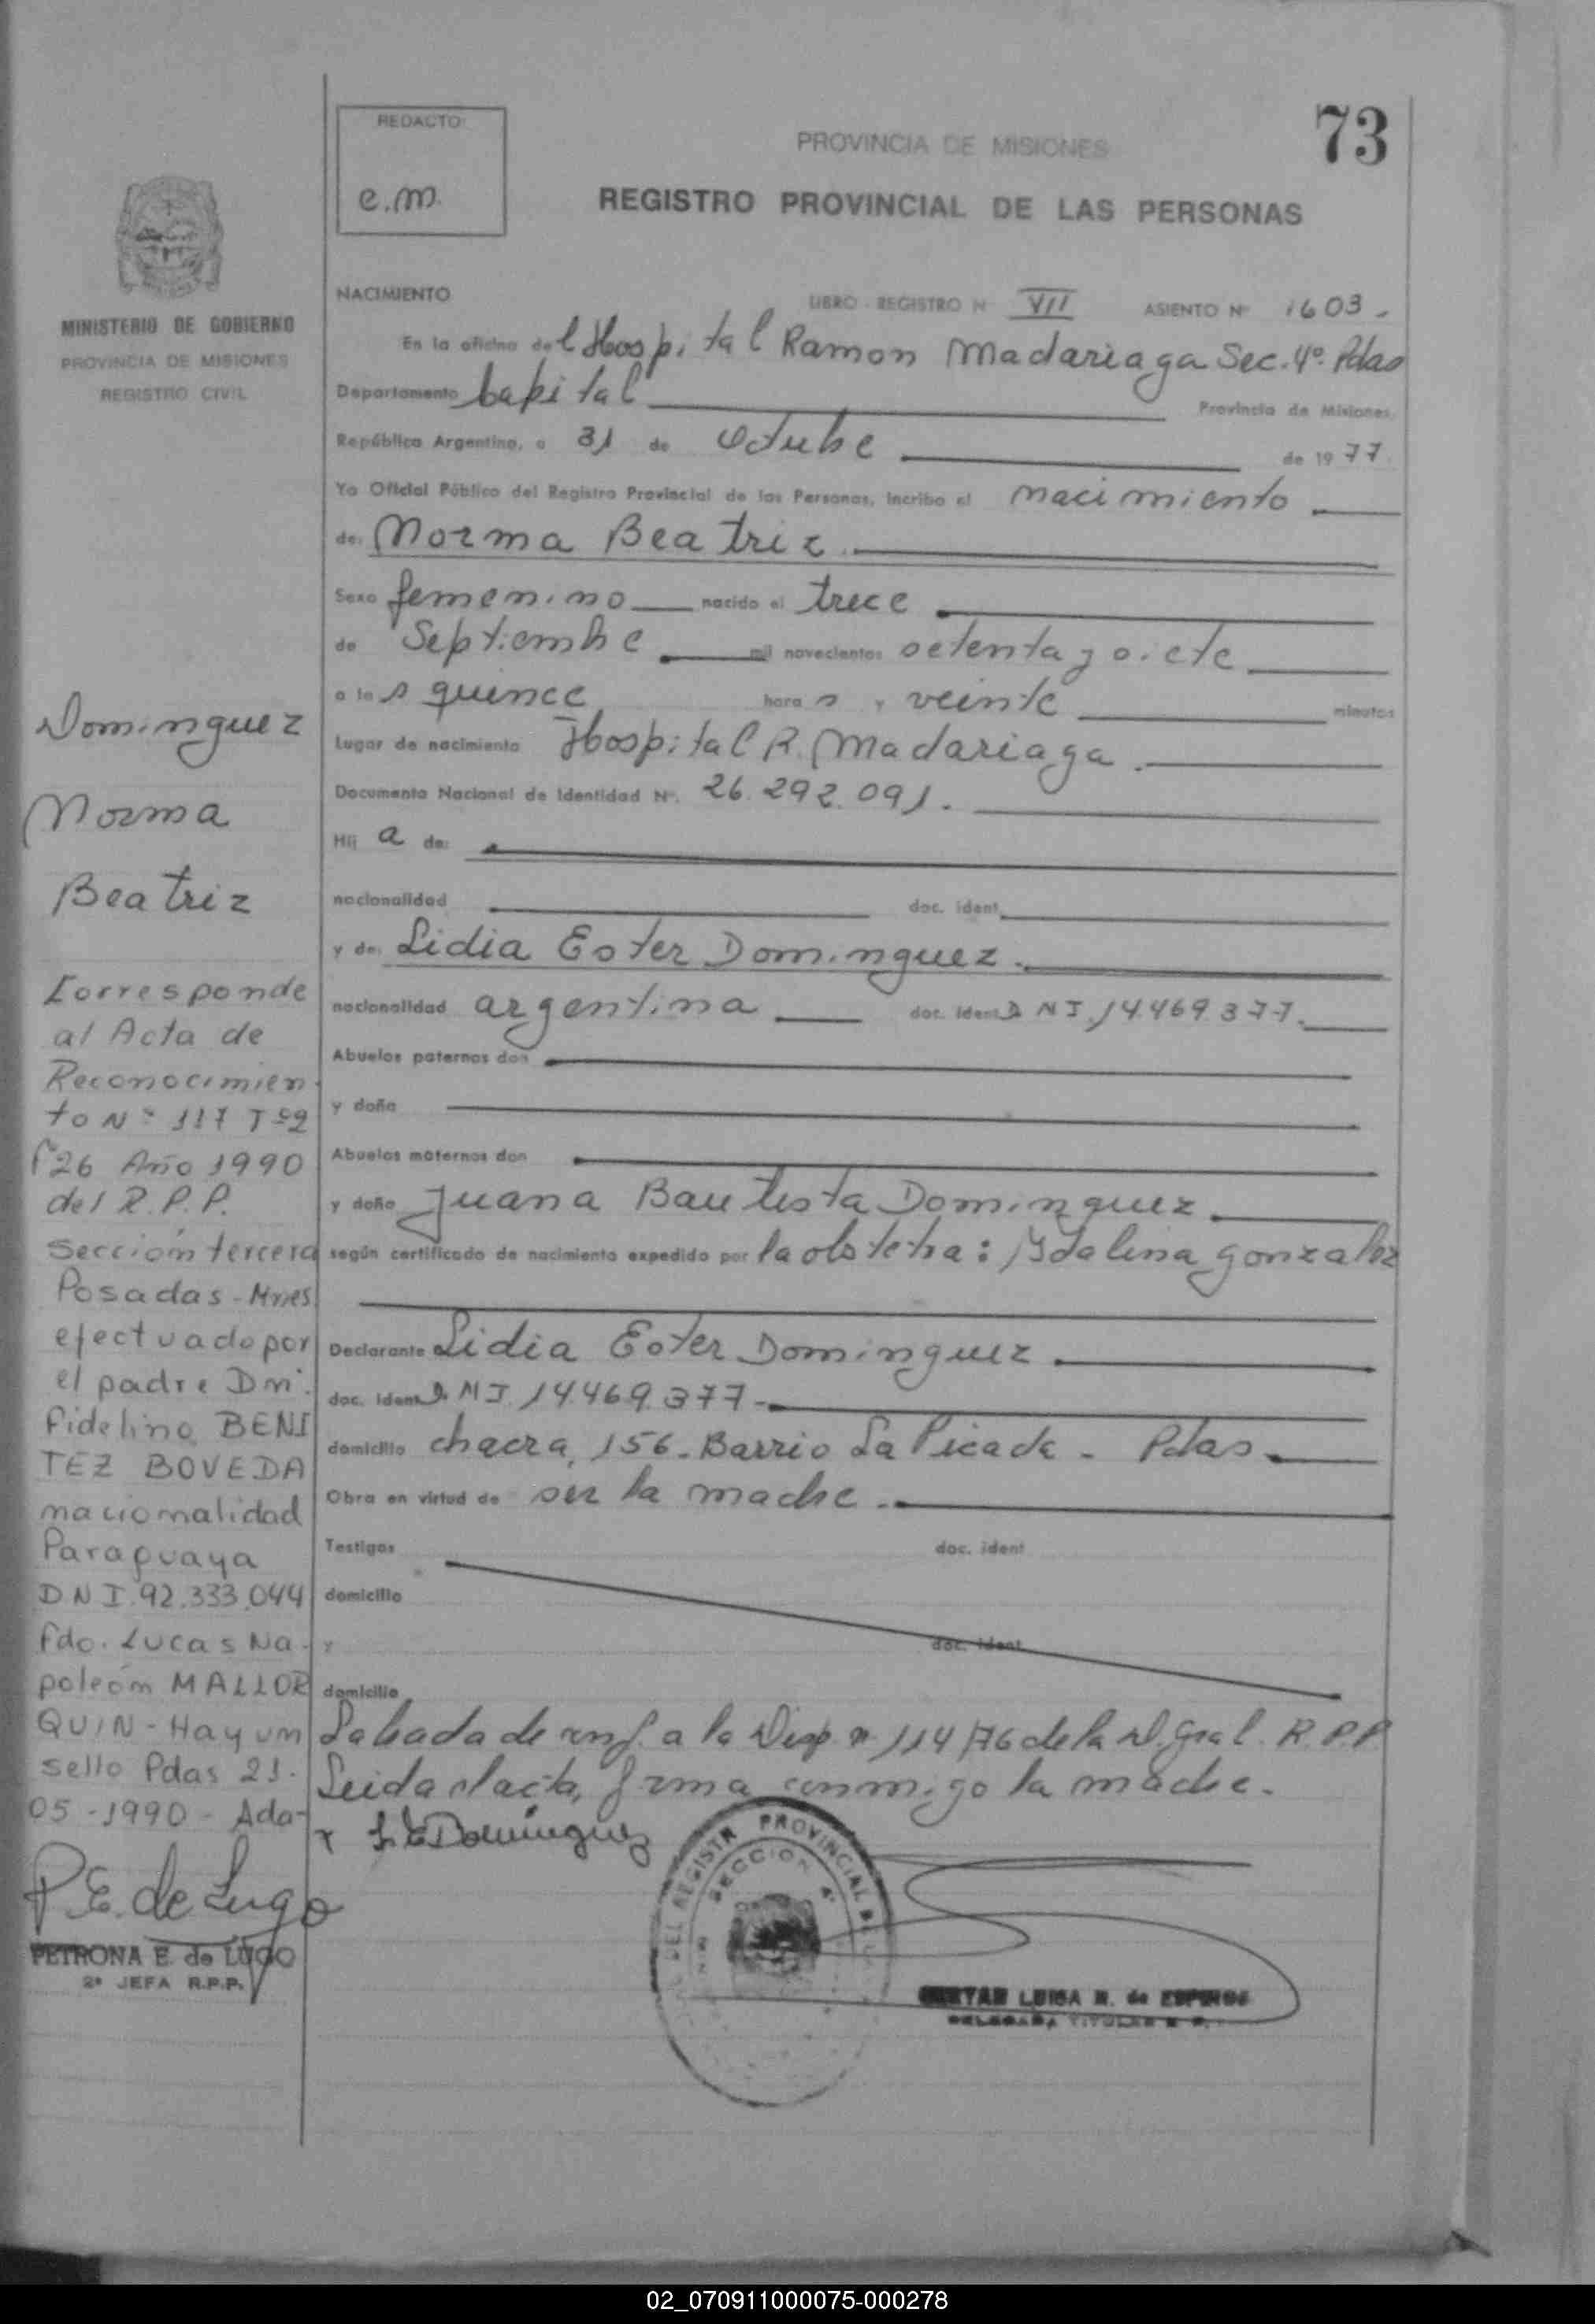 REDACTO:
e.m.
PROVINCIA DE MISIONES
73
REGISTRO PROVINCIAL DE LAS PERSONAS
MINISTERIO DE GOBIERNO
PROVINCIA DE MISIONES
REGISTRO CIVIL
NACIMIENTO
LIBRO - REGISTRO Nº VII ASIENTO Nº 1603.
En la oficina del Hospital Ramon Madariaga Sec. 4º. Pdas
Departamento Capital Provincia de Misiones
República Argentina, a 31 de Octubre de 1977
Yo Oficial Público del Registro Provincial de las Personas, incribo el nacimiento
de: Norma Beatriz
Sexo femenino nacido el trece
de Septiembre mil novecientos setenta y siete
a las quince hora s y veinte minutos
Lugar de nacimiento Hospital R. Madariaga.
Documento Nacional de Identidad Nº. 26.292.091.
Hij a de:
nacionalidad doc. ident.
y de: Lidia Ester Dominguez.
nacionalidad argentina doc. ident D N I. 14.469.377.
Abuelos paternos don
y doña
Abuelos maternos don
y doña Juana Bautista Dominguez
según certificado de nacimiento expedido por la obstetra: Ydalina Gonzalez
Declarante Lidia Ester Dominguez
doc. ident D. N I. 14.469.377-
domicilio chacra 156 - Barrio La Picada - Pdas
Obra en virtud de ser la madre.
Testigos doc. ident
domicilio
y doc. ident
domicilio
Labada de conf. a la Disp. nº 114/76 de la D. Gral. R.P.P.
Leida el acta, firma conmigo la madre.
x L. E Dominguez
Dominguez
Norma
Beatriz
Corresponde
al Acta de
Reconocimien
to Nº 117 Tº2
Fº26 Año 1990
del R.P.P.
Sección tercera
Posadas - Mnes
efectuado por
el padre Dn.
Fidelino BENI
TEZ BOVEDA
nacionalidad
Paraguaya
D N I. 92.333.044
Fdo. Lucas Na-
poleón MALLOR
QUIN - Hay un
sello Pdas 21-
05-1990 - Ada-
P.E. de Lugo
PETRONA E. de LUGO
2ª JEFA R.P.P.
DEL REGISTR PROVINCIAL DE
SECCION 4ª
LUISA N. de
DELEGADA TITULAR R. P.
02_070911000075-000278